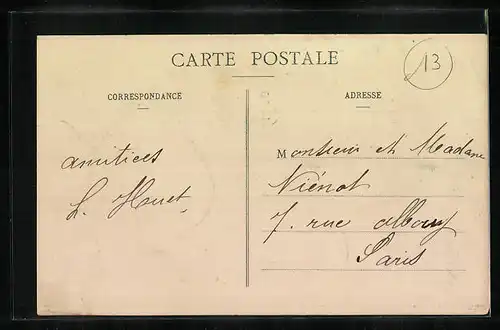 CARTE POSTALE
13
CORRESPONDANCE
amitiées
L. Huet
ADRESSE
Monsieur et Madame
Viénot
7. rue albouy
Paris